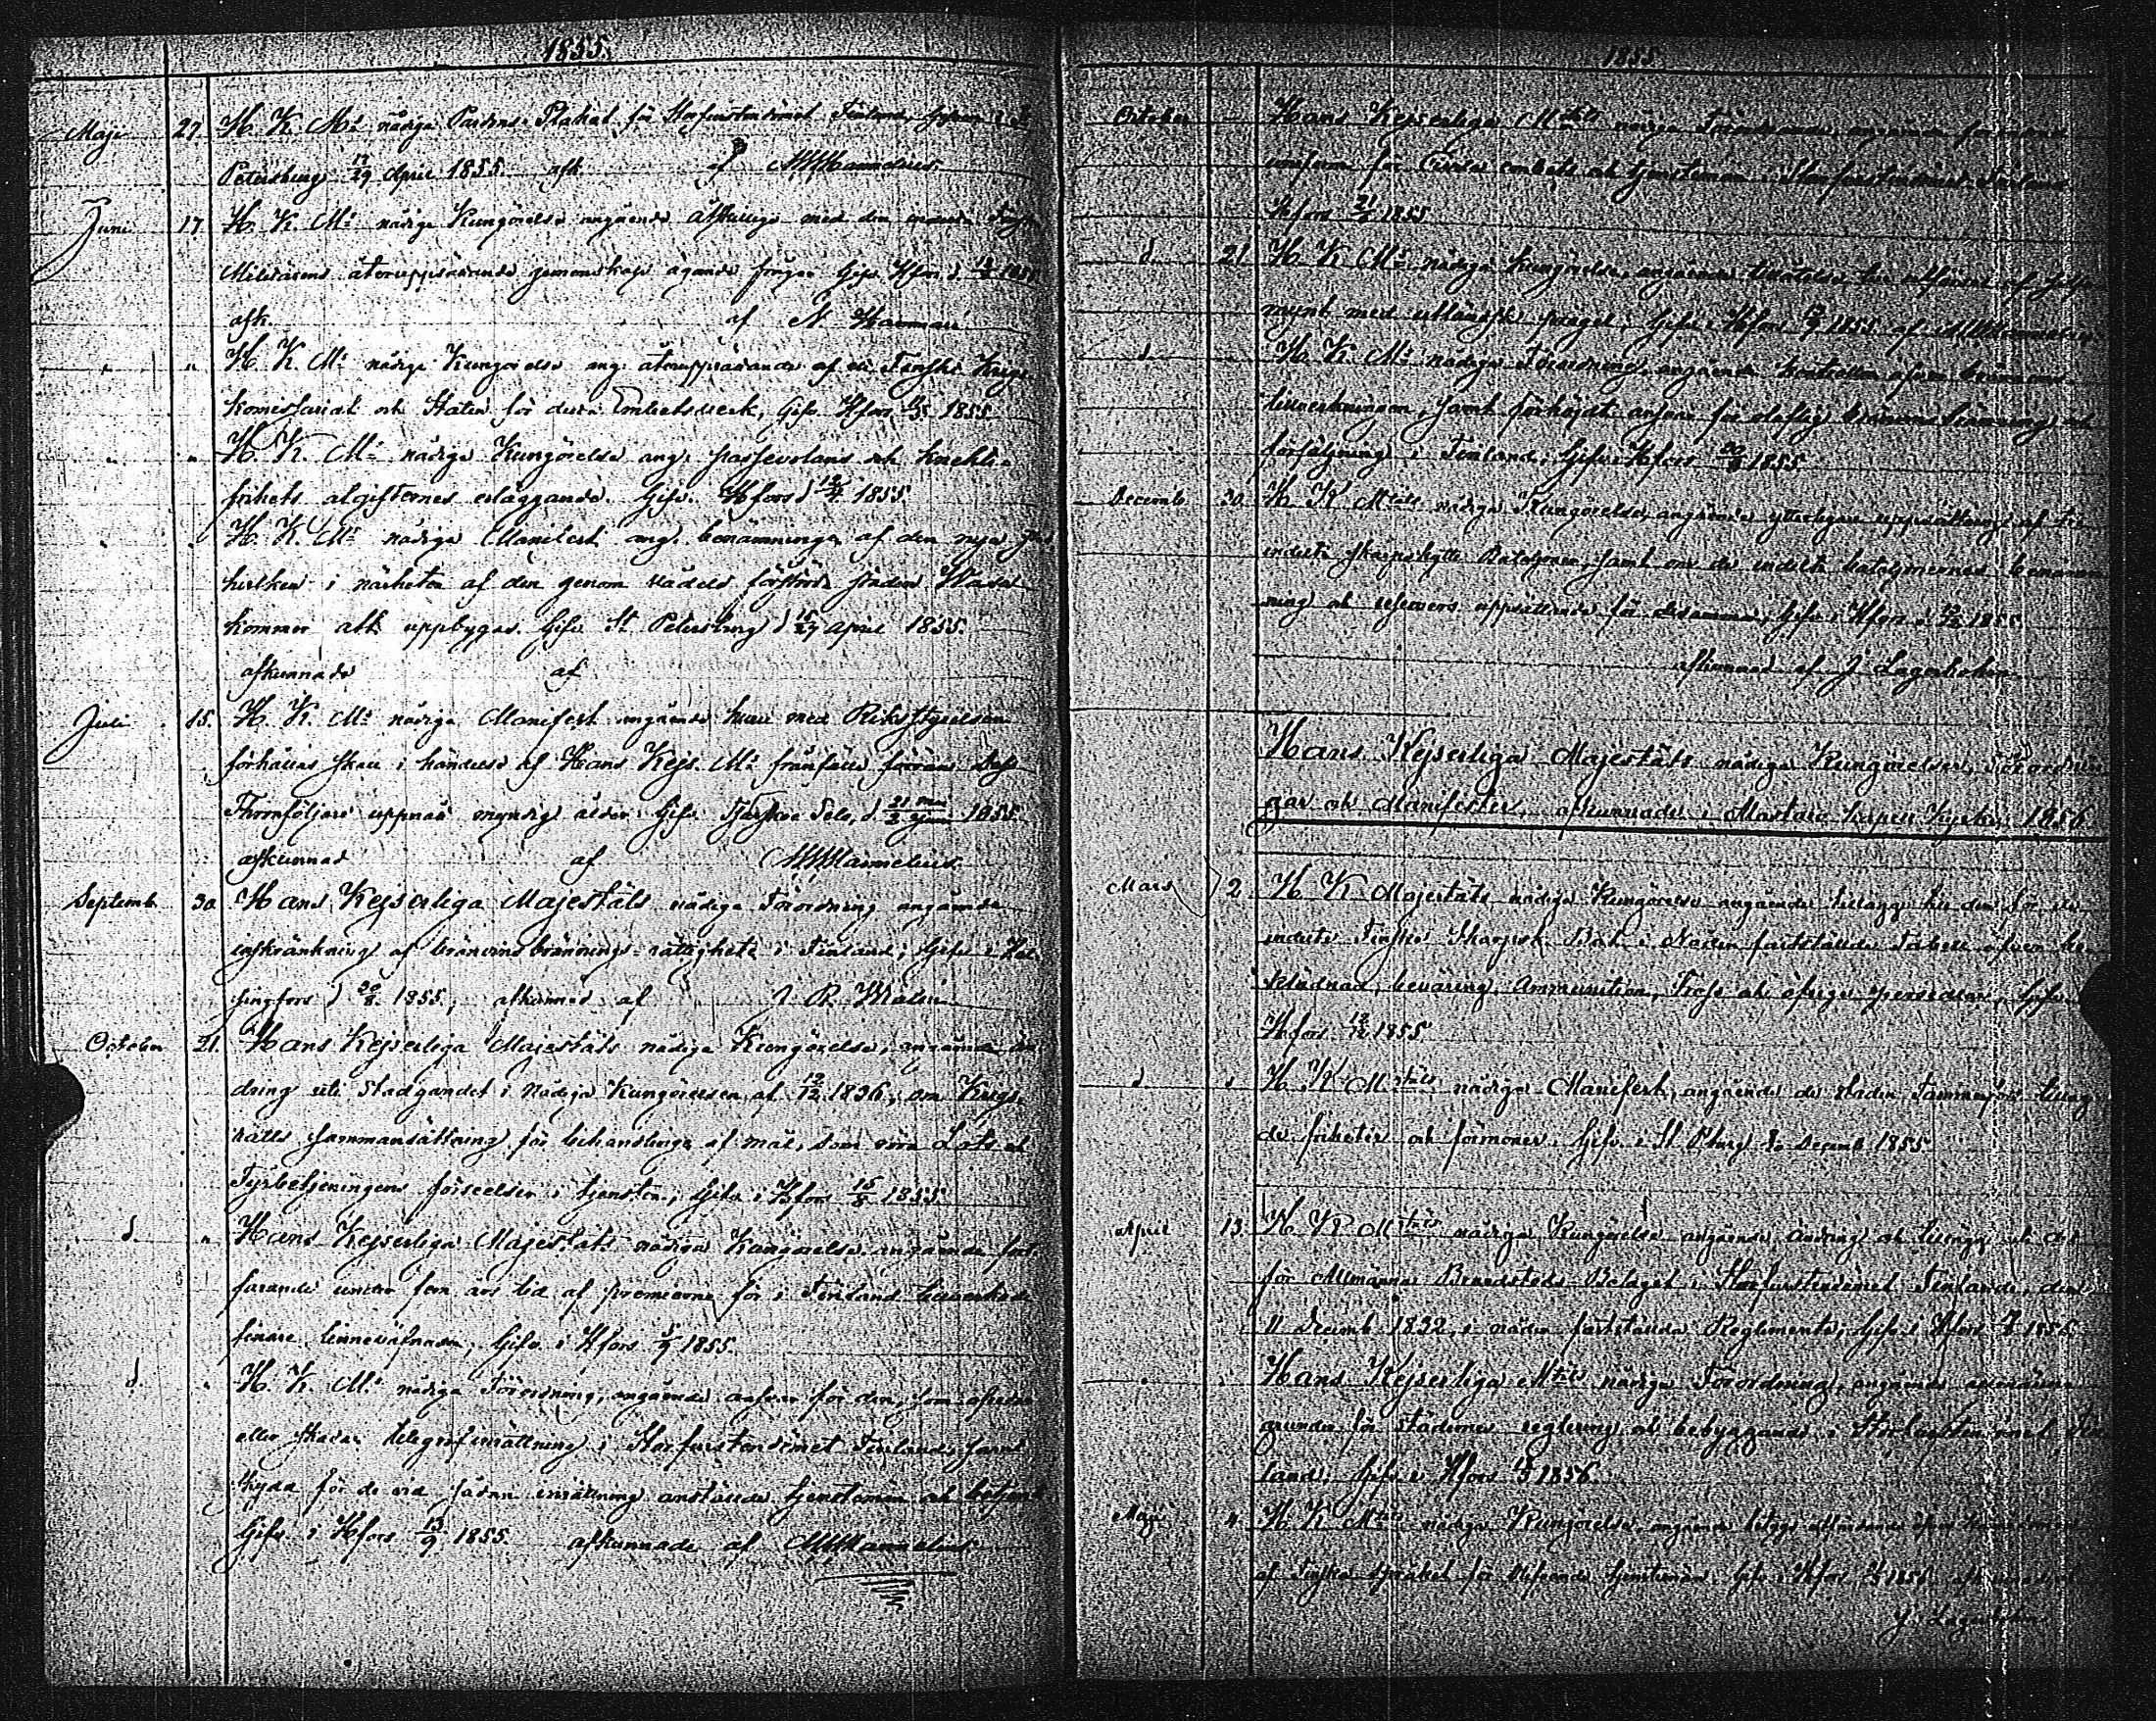 1855.
Maji 27 H. K. M:s nådiga Plakat för Storfurstendömet Finland, gifven i St
Petersburg 17/29 April 1855 afk. af M Mannelius.
Juni 17. H. K. M:s nådiga Kungörelse angående åtskillige med den indelta Finska
Militärens återupprättande gemenskap ägande frågor Gifv. Hfors d 1855
afk. af N Hannen
" " H. K. M:s nådiga Kungörelse ang. återupprättande af ett Finskt Krigs
Komissariat och Staten för detta Embetsverk, Gifv. Hfors 1855.
" " H. K. M:s nådiga Kungörelse ang. passevolans och knekte-
frihets afgifternes erläggande. Gifv. Hfors d 1855
" " H. K. M:s nådiga Manifest ang. benämningen af den nya stad
hvilken i närheten af den genom vådeld förstörda staden Wasa
kommer att uppbygas. Gifv. St Petersburg d April 1855.
afkunnade af
Juli 15. H. K. M:s nådiga Manifest angående huru med Riks Styrelsen
förhållas skall i händelse af Hans Kejs. M:s frånfälle förrän dess
Thronföljare uppnått myndig ålder. Gifv. Tsarskoe Selo, d 21 Maj/2 Juni 1855
afkunnad af M Mannelius.
Septemb. 30 Hans Kejserliga Majestäts nådiga Förordning angående
inskränkning af bränvinsbrännings-rättighete i Finland; Gifv. i Hel-
singfors d 20/8 1855, afkunnad af J R Malin
October 21. Hans Kejserliga Majestäts nådiga Kungörelse, angående än-
dring uti Stadgandet i Nådiga Kungörelsen af 19/12 1836, om Krigs-
rätts sammansättning för behandlinge af mål, som röra Lots och
Fyrbetjeningens förseelser i tjensten; Gifv. i Hfors 15/8 1855
d " Hans Kejserliga Majestäts nådiga Kungörelse angående fort-
farande under fem års tid af premierne för i Finland tillverkade
finare linneväfnader, Gifv. i Hfors 5/9 1855.
d. " H. K. M:s nådiga Förordning, angående ansvar för den, som
eller skadar telegrafinrättning i Storfurstendömet Finland, samt
skydd för de vid sådan inrättning anstälde tjenstemän och betjente
Gifv. i Hfors 13/9 1855. afkunnade af M Mannelius
1855
October Hans Kejserliga M:täts nådiga Förordnande, angående förändrad
uniform för Civila embets och tjensteman i Storfurstendömet Finland
Hfors 1855
d 21 H K M:s nådiga Kungörelse, angående tillåtelse till utförsel af silfver
mynt med utländsk prägel; Gifv. i Hfors 1855 af M Mannelius
d H. K M:s nådiga Förordning, angående kontrollen öfver bränvins
tillverkningen, samt förhöjdt ansvar för oloflig bränvins bränning och
försäljning i Finland; Gifv. i Hfors 20/8 1855
Decemb 30 H K M:täts nådiga Kungörelse, angående ytterligare uppsättning af tre
indelta skarpskytte Bataljoner, samt om de indelta bataljonernes benäm-
ning och reservers uppsättande för desamma; Gifv. i Hfors d 1855
afkunnad af J Lagerbohm
Hans Kejserliga Majestäts nådiga Kungörelser, Förordnin
gar och Manifester, afkunnade i Kapell Kyrka 1856
Mars 2 H K Majestäts nådiga Kungörelse angående tillägg till den för de
indelte Finska Skarpsk. Bat. i Nåder fastställda Tabell öfver be-
klädnad, beväring, Ammunition, Tross och öfrige persedlar, Gifv.
Hfors 1855
d " H K M:täts nådiga Manifest, angående de staden Tammerfors tillag-
de friheter och förmoner. Gifv. i St Pburg Decemb 1855
April 13. H. K M:täts nådiga Kungörelse angående, ändring och tillägg
för Allmänna Brandstods Bolaget i Storfurstendömet Finland, den
11 Decemb 1832, i nåder fastställda Reglemente; Gifv. i Hfors 1856
Hans Kejserliga M:täts nådiga Förordning, angående allmänna
grunder för städernes reglering och bebyggande i Storfurstendömet Fin
land. Gifv. i Hfors 1856
Maji 4 H. K M:täts nådiga Kungörelse, angående
af Finska språket för tjenstemän. Gifv. i Hfors 1856
J Lagerbohm